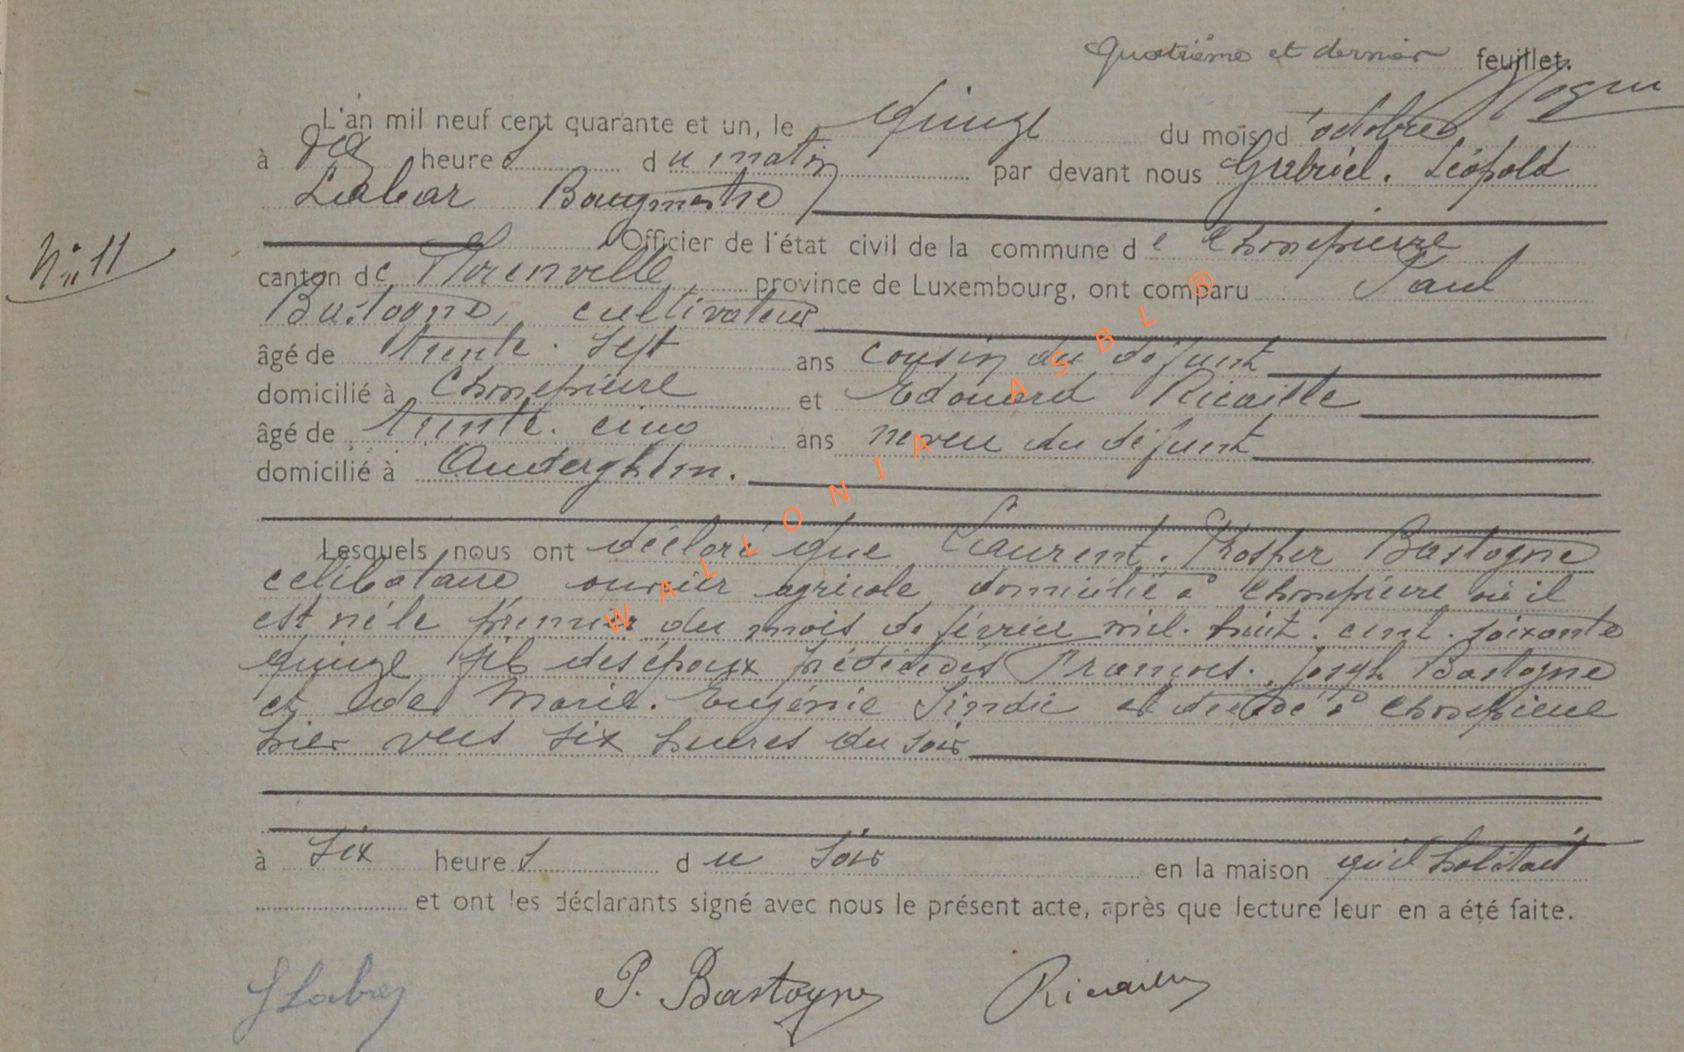 Quatrième et dernier feuillet.
L'an mil neuf cent quarante et un, le quinze du mois d'octobre
à dix heures du matin par devant nous Gabriel. Léopold
Labar Bourgmestre
N° 11
Officier de l'état civil de la commune de Chassepierre
canton de Florenville province de Luxembourg, ont comparu Paul
Bastogne, cultivateur
âgé de trente. sept ans cousin du défunt
domicilié à Chassepierre et Edouard Ricaille
âgé de trente. cinq ans neveu du défunt
domicilié à Auderghem.
Lesquels nous ont déclaré que Laurent. Prosper Bastogne
célibataire ouvrier agricole domicilié à Chassepierre où il
est né le premier du mois de février mil. huit. cent. soixante
quinze fils des époux prédécédés François. Joseph Bastogne
et de Marie. Eugénie est décédé à Chassepierre
hier vers six heures du soir
à six heures du soir en la maison qu'il habitait
et ont les déclarants signé avec nous le présent acte, après que lecture leur en a été faite.
P. Bastogne Ricaille
WALLONIA ASBL ®